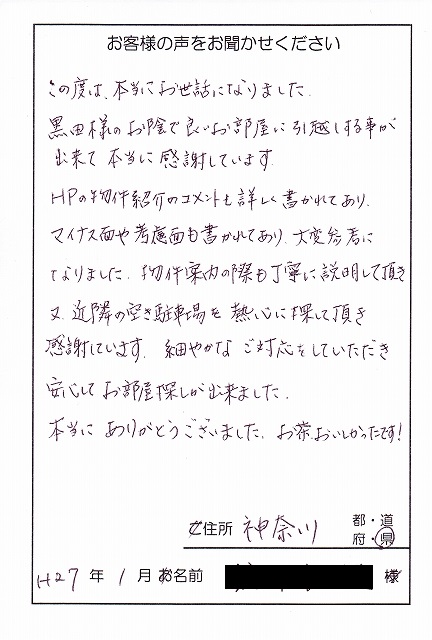 お客様の声をお聞かせください
この度は、本当にお世話になりました。
黒田様のお陰で良いお部屋に引越しする事が
出来て本当に感謝しています。
HPの物件紹介のコメントも詳しく書かれてあり、
マイナス面や考慮面も書かれてあり、大変参考に
なりました。物件案内の際も丁寧に説明して頂き
又、近隣の空き駐車場を熱心に探して頂き
感謝しています。細やかなご対応をしていただき
安心してお部屋探しが出来ました。
本当にありがとうございました。お茶おいしかったです!
ご住所 神奈川 都・道
府・県
H27年 1月 お名前 様